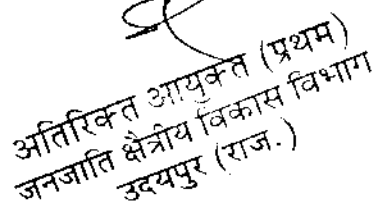 अतिरिक्त आयुक्त (प्रथम)
जनजाति क्षैत्रीय विकास विभाग
उदयपुर (राज.)